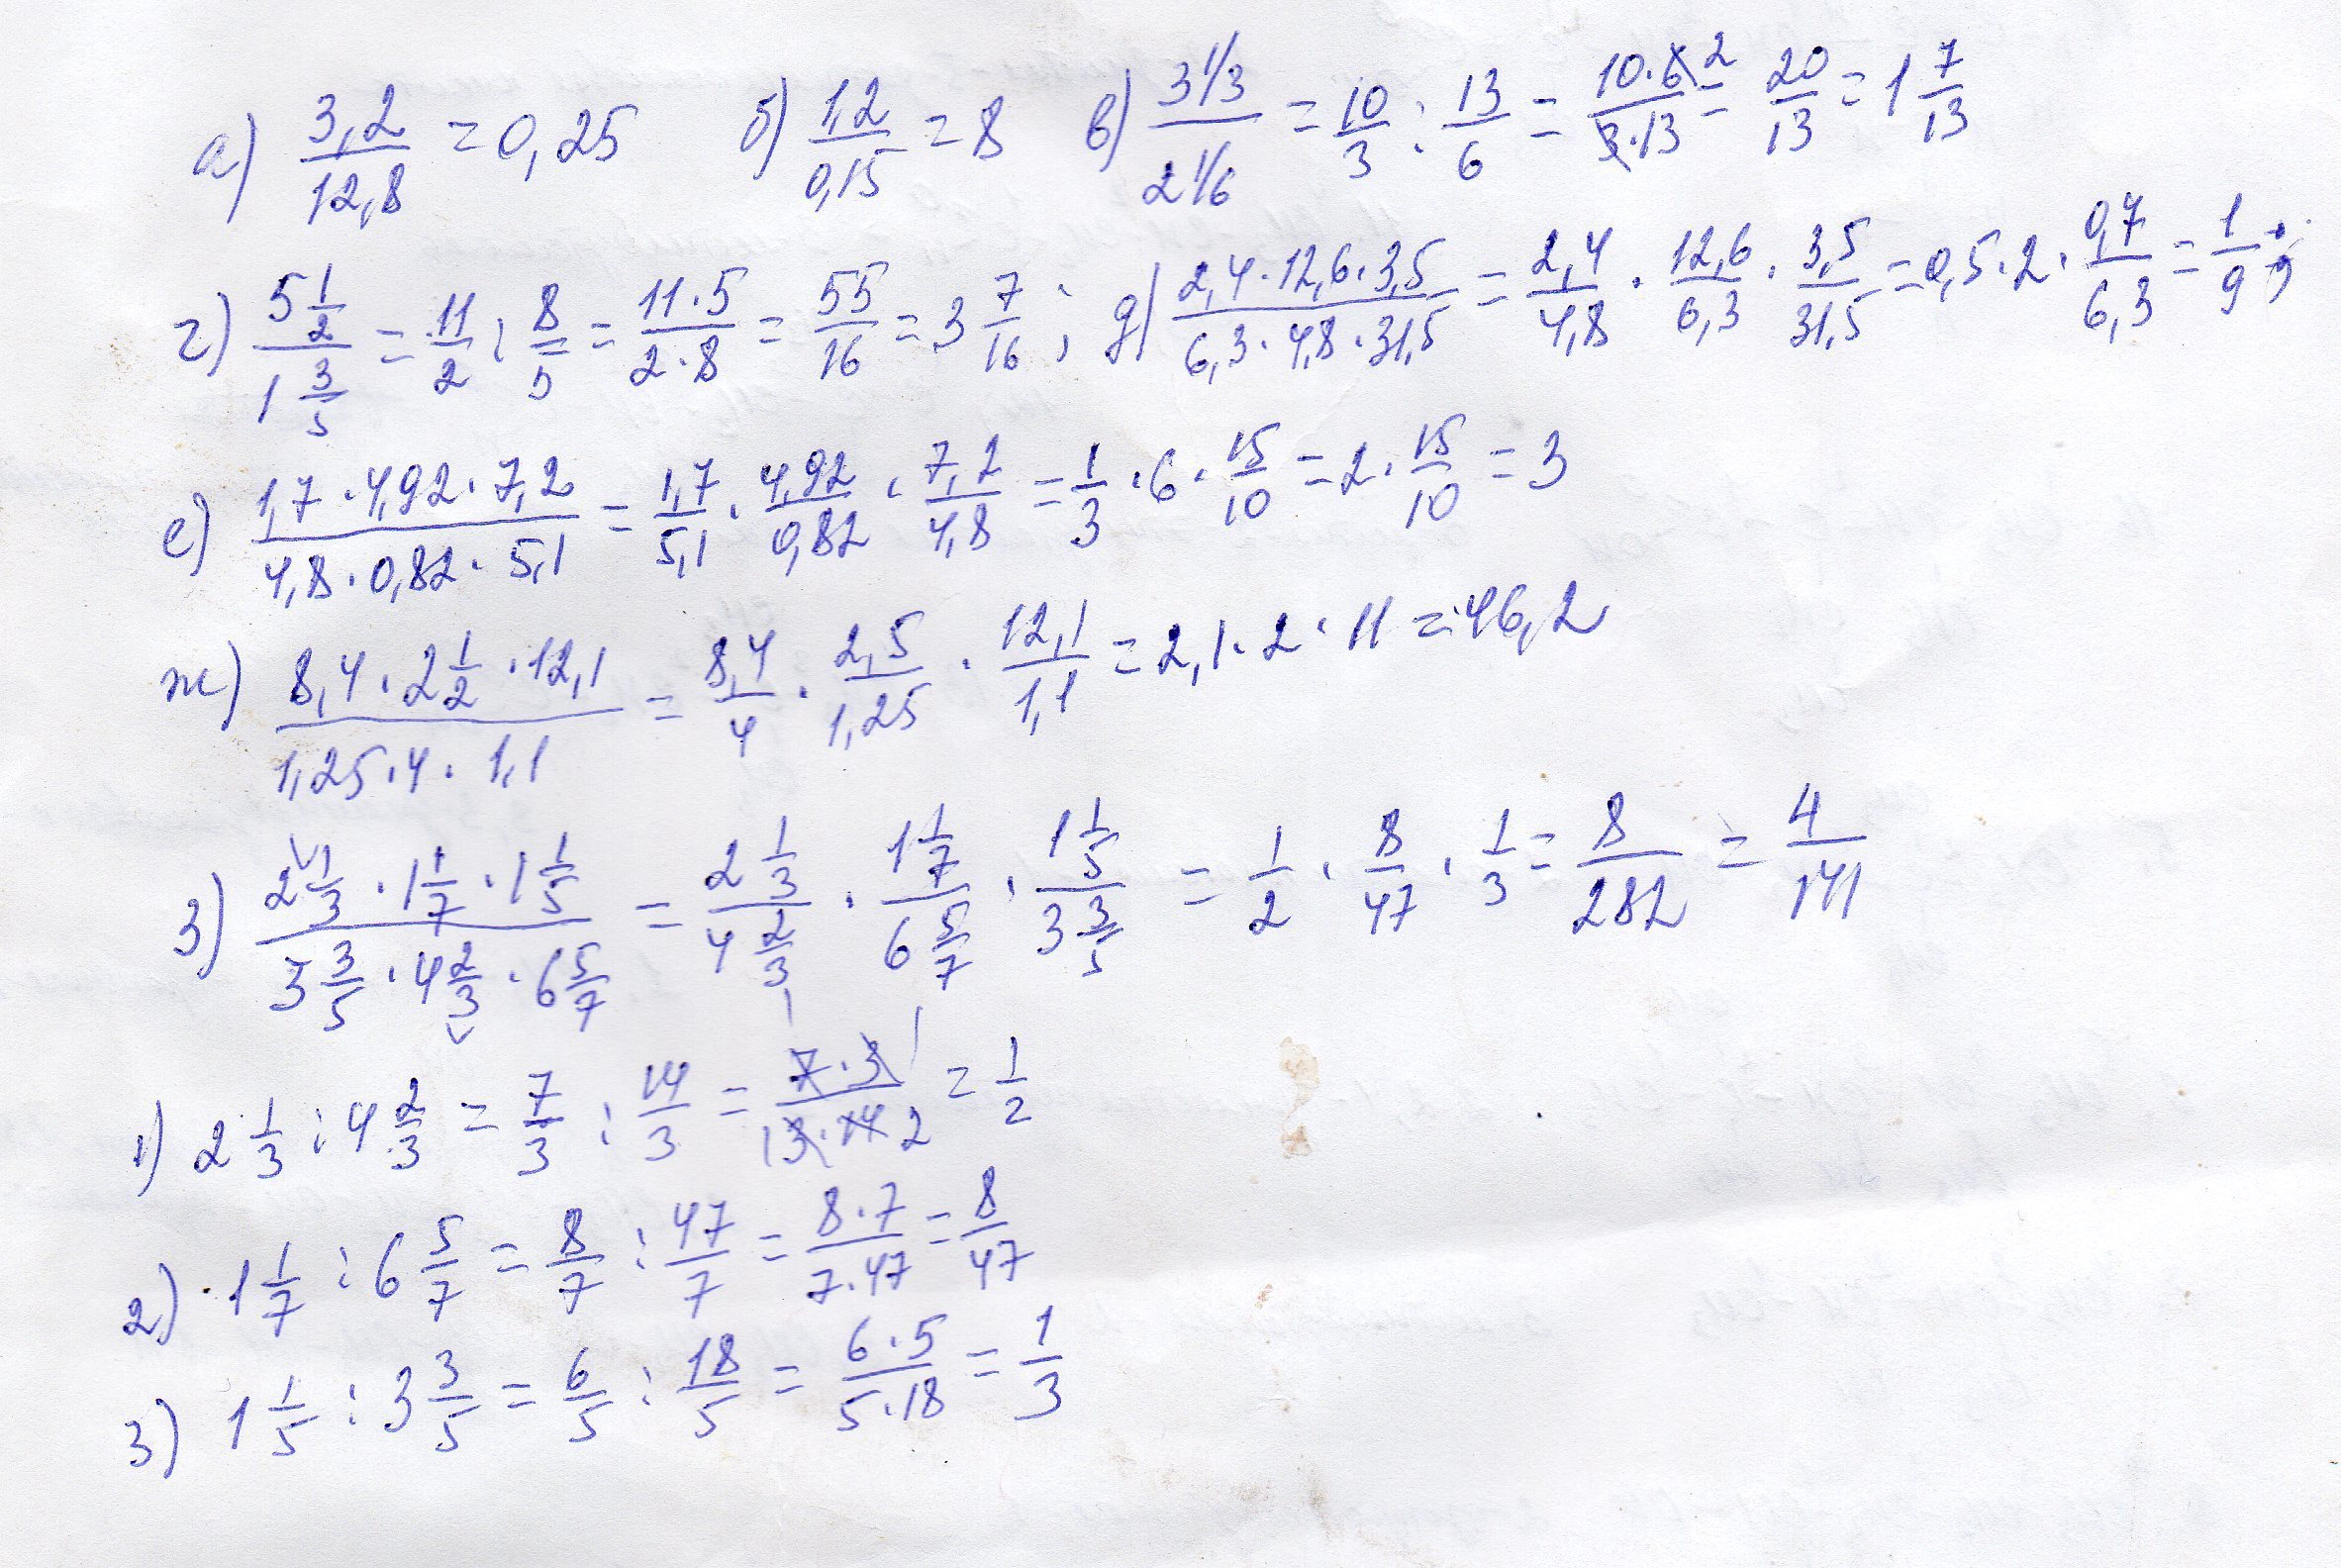 а) 3,2/12,8 = 0,25 б) 1,2/0,15 = 8 в) 3 1/3 / 2 1/6 = 10/3 : 13/6 = 10·6 2/3·13 = 20/13 = 1 7/13
г) 5 1/2 / 1 3/5 = 11/2 : 8/5 = 11·5/2·8 = 55/16 = 3 7/16 ; д) 2,4·12,6·3,5/6,3·4,8·31,5 = 2,4/4,8 · 12,6/6,3 · 3,5/31,5 = 0,5·2· 0,7/6,3 = 1/9 ;
е) 1,7·4,92·7,2/4,8·0,82·5,1 = 1,7/5,1 · 4,92/0,82 · 7,2/4,8 = 1/3 ·6· 15/10 = 2· 15/10 = 3
ж) 8,4·2 1/2 ·12,1/1,25·4·1,1 = 8,4/4 · 2,5/1,25 · 12,1/1,1 = 2,1·2·11 = 46,2
з) 2 1/3 · 1 1/7 · 1 1/5 / 3 3/5 · 4 2/3 · 6 5/7 = 2 1/3 / 4 2/3 · 1 1/7 / 6 5/7 · 1 1/5 / 3 3/5 = 1/2 · 8/47 · 1/3 = 8/282 = 4/141
1) 2 1/3 : 4 2/3 = 7/3 : 14/3 = 1 7·3 1/1 3·14 2 = 1/2
2) 1 1/7 : 6 5/7 = 8/7 : 47/7 = 8·7/7·47 = 8/47
3) 1 1/5 : 3 3/5 = 6/5 : 18/5 = 6·5/5·18 = 1/3